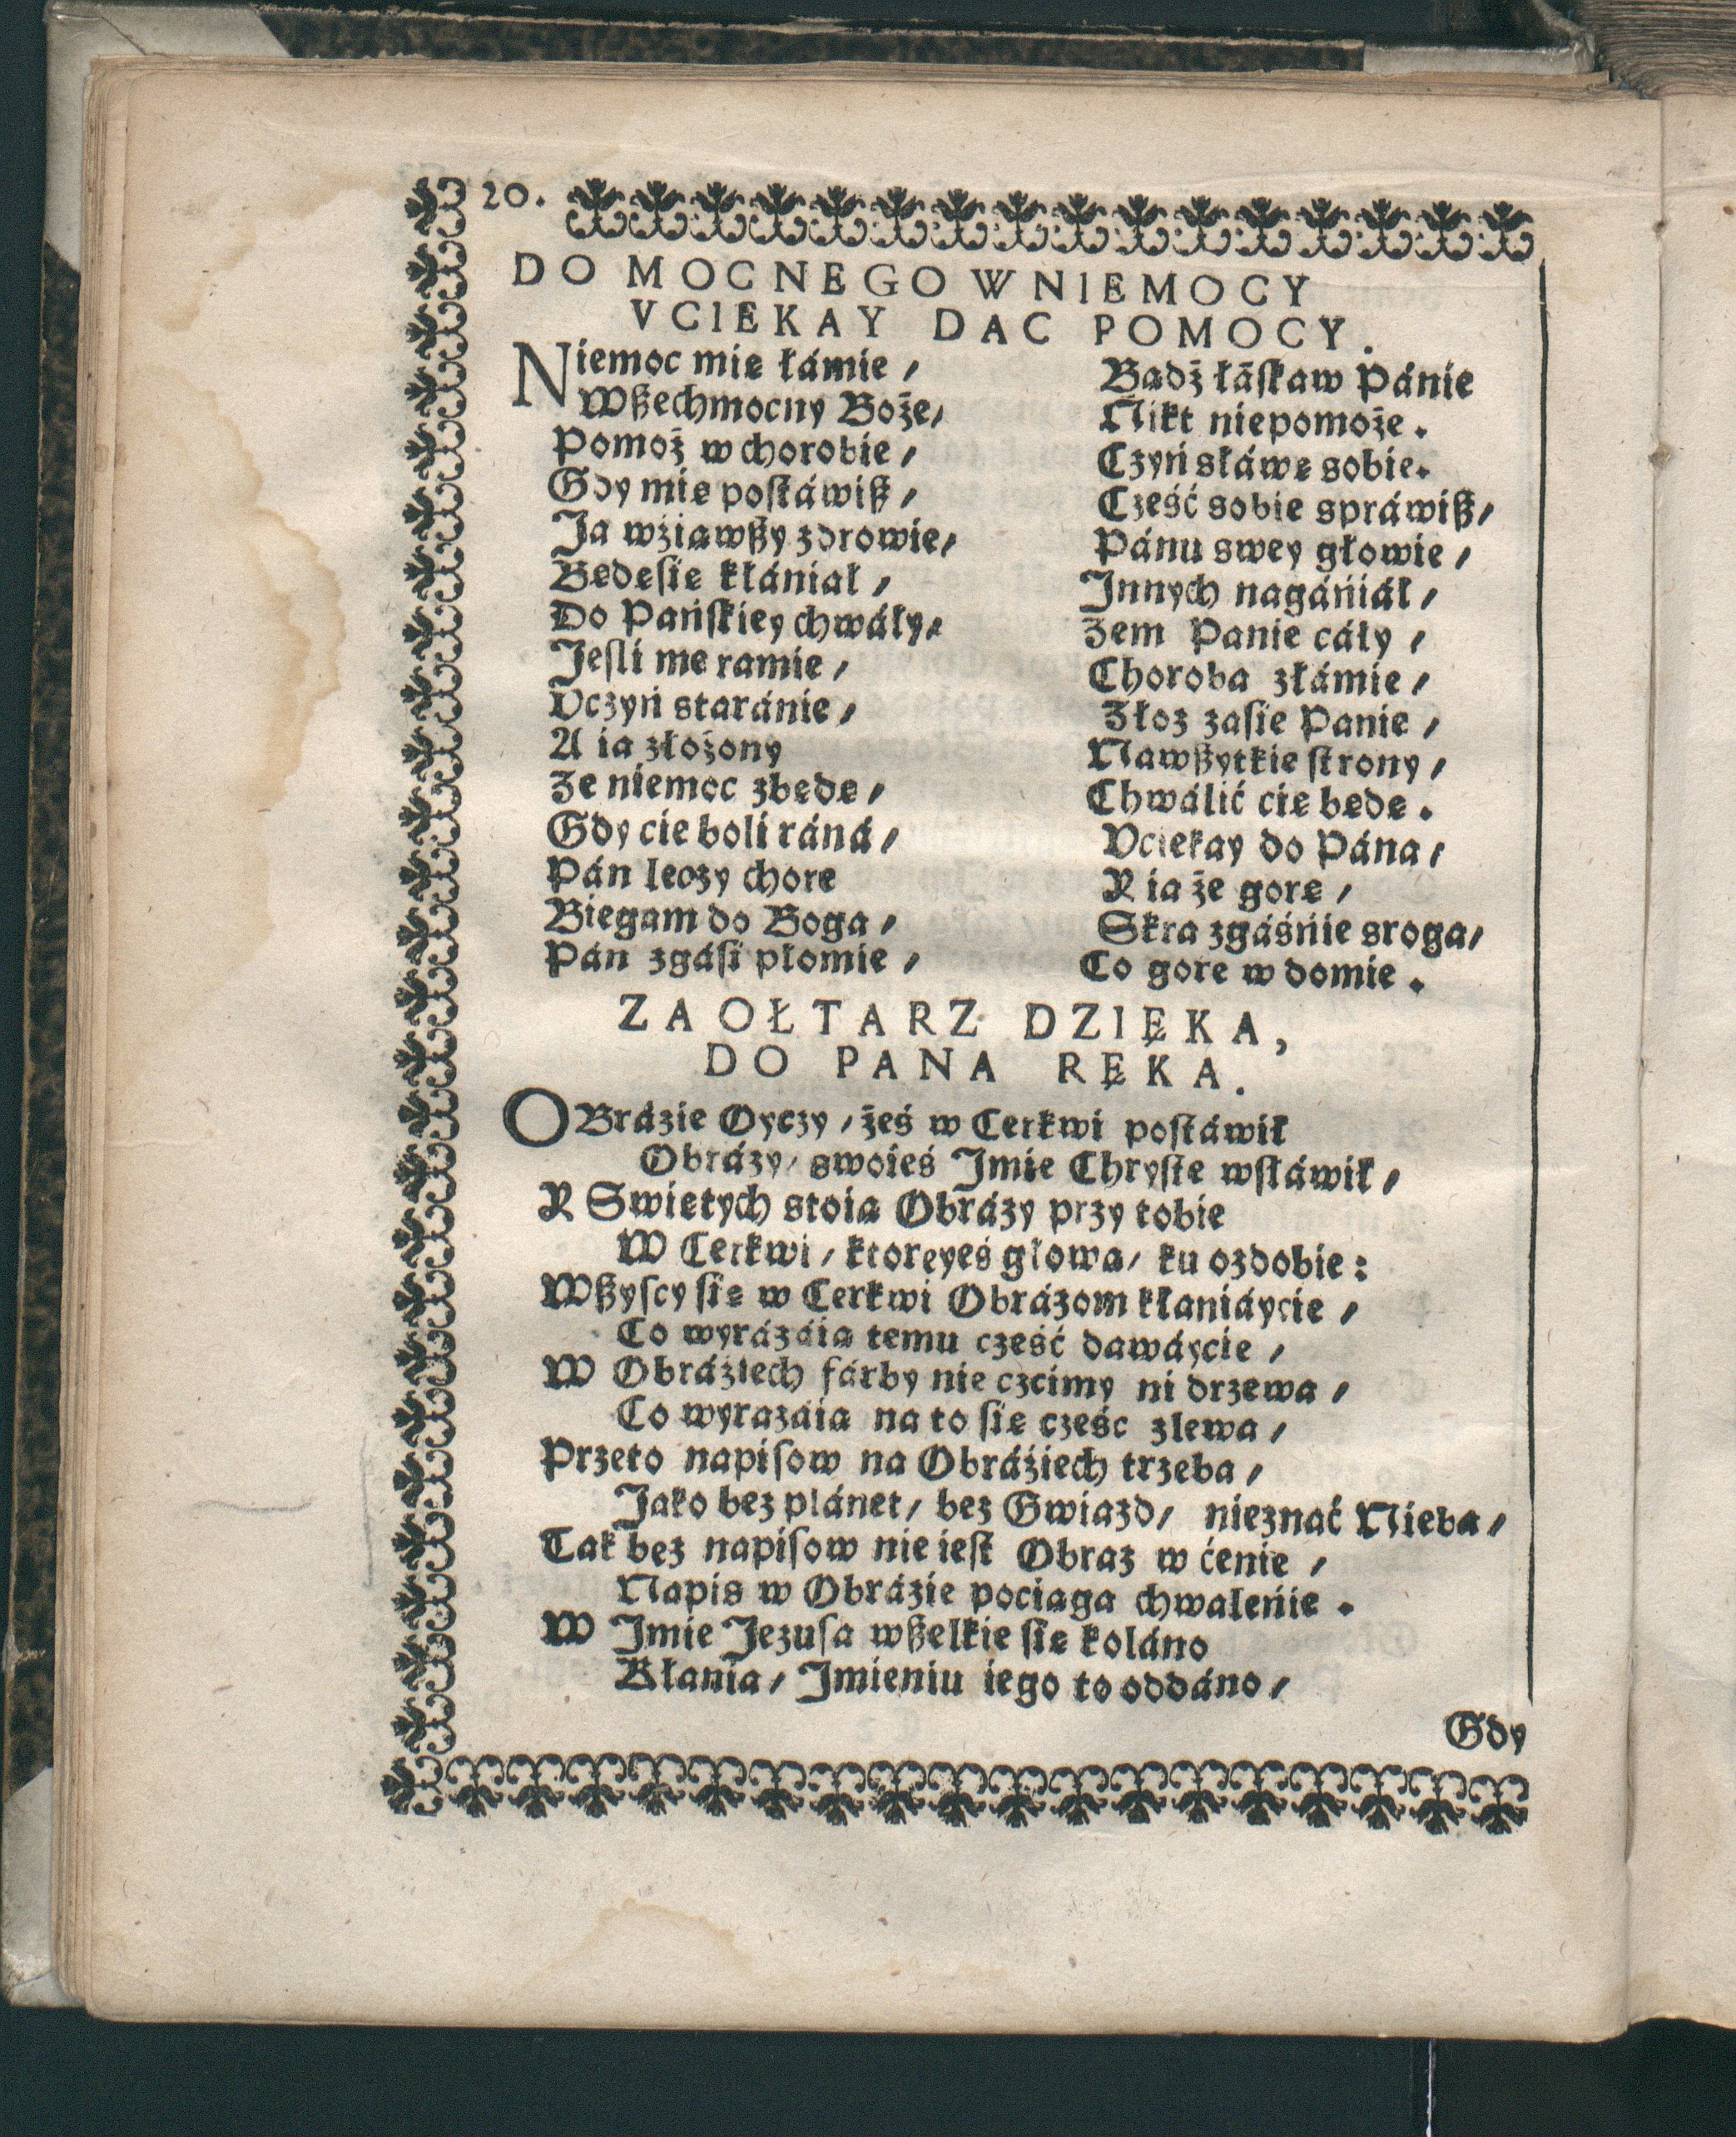 20.
DO MOCNEGO W NIEMOCY
VCIEKAY DAC POMOCY.
Niemoc mię łámie /
Bądź łáskaw Pánie
Wßechmocny Boże /
Nikt niepomoże.
Pomoż w chorobie /
Czyń słáwę sobie.
Gdy mię postáwiß /
Cześć sobie spráwiß /
Ja wźiąwßy zdrowie /
Pánu swey głowie /
Będęsię kłániał /
Innych nagániał /
Do Pańskiey chwáły /
Zem Panie cáły /
Jesli me ramie /
Choroba złámie /
Vczyń staránie /
Złoż zasie Panie /
A ia złożony
Nawßytkie strony /
Ze niemoc zbędę /
Chwálić cię będę.
Gdy cie boli ráná /
Vciekay do Pána /
Pán leczy chore
Y ia że gorę /
Biegam do Boga /
Skra zgáśńie sroga /
Pán zgási płomie /
Co gore w domie.
ZA OŁTARZ DZIĘKA,
DO PANA RĘKA.
OBrázie Oyczy / żeś w Cerkwi postáwił
Obrázy / swoieś Jmie Chryste wsłáwił /
Y Swiętych stoią Obrázy przy tobie
W Cerkwi / ktoreyeś głową / ku ozdobie:
Wßyscy się w Cerkwi Obrázom kłaniáycie /
Co wyrázáią temu cześć dawáycie /
W Obráźiech fárby nie czcimy ni drzewa /
Co wyrazáią na to się cześc zlewa /
Przeto napisow na Obráźiech trzeba /
Jako bez plánet / bez Gwiazd / nieznać Nieba /
Tak bez napisow nie iest Obraz w ćenie /
Napis w Obrázie pociąga chwaleńie.
W Jmie Jezusa wßelkie się koláno
Kłania / Jmieniu iego to oddáno /
Gdy